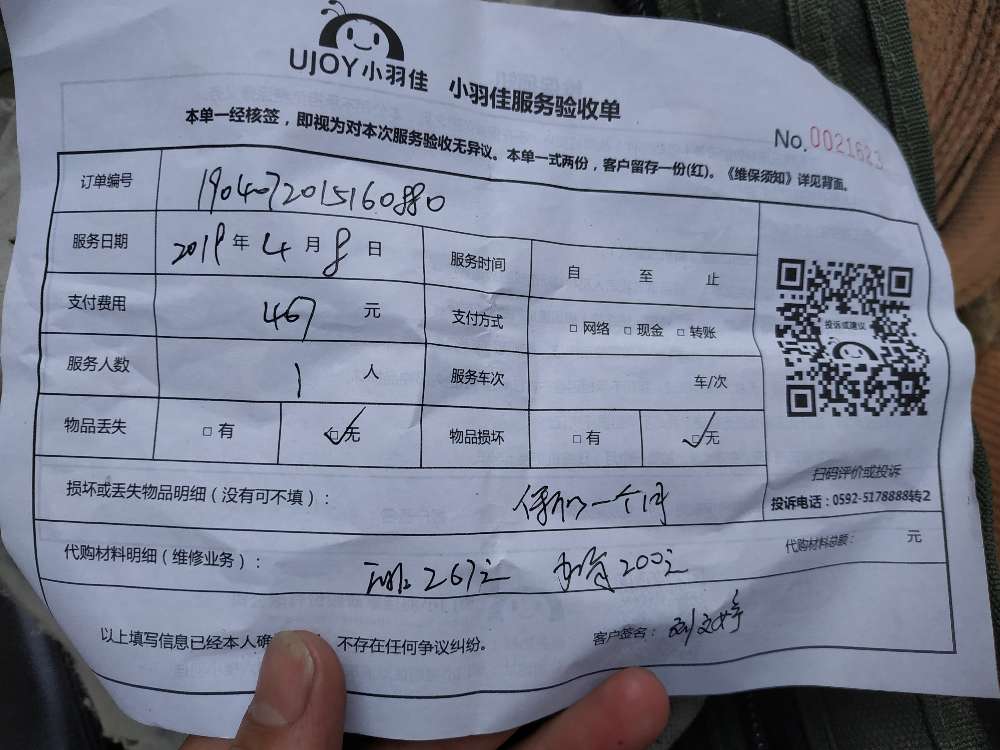 UJOY小羽佳 小羽佳服务验收单
No.0021623
本单一经核签，即视为对本次服务验收无异议。本单一式两份，客户留存一份(红)。《维保须知》详见背面。
订单编号 1904072015160880
服务日期 2019年4月8日 服务时间 自 至 止
支付费用 467 元 支付方式 □网络 □现金 □转账
投诉或建议
服务人数 1 人 服务车次 车/次
物品丢失 □有 ☑无 物品损坏 □有 ☑无
扫码评价或投诉
损坏或丢失物品明细（没有可不填）： 一个月
投诉电话：0592-5178888转2
代购材料明细（维修业务）： 267元 200元 代购材料总额： 元
以上填写信息已经本人确 不存在任何争议纠纷。 客户签名： 刘文婷